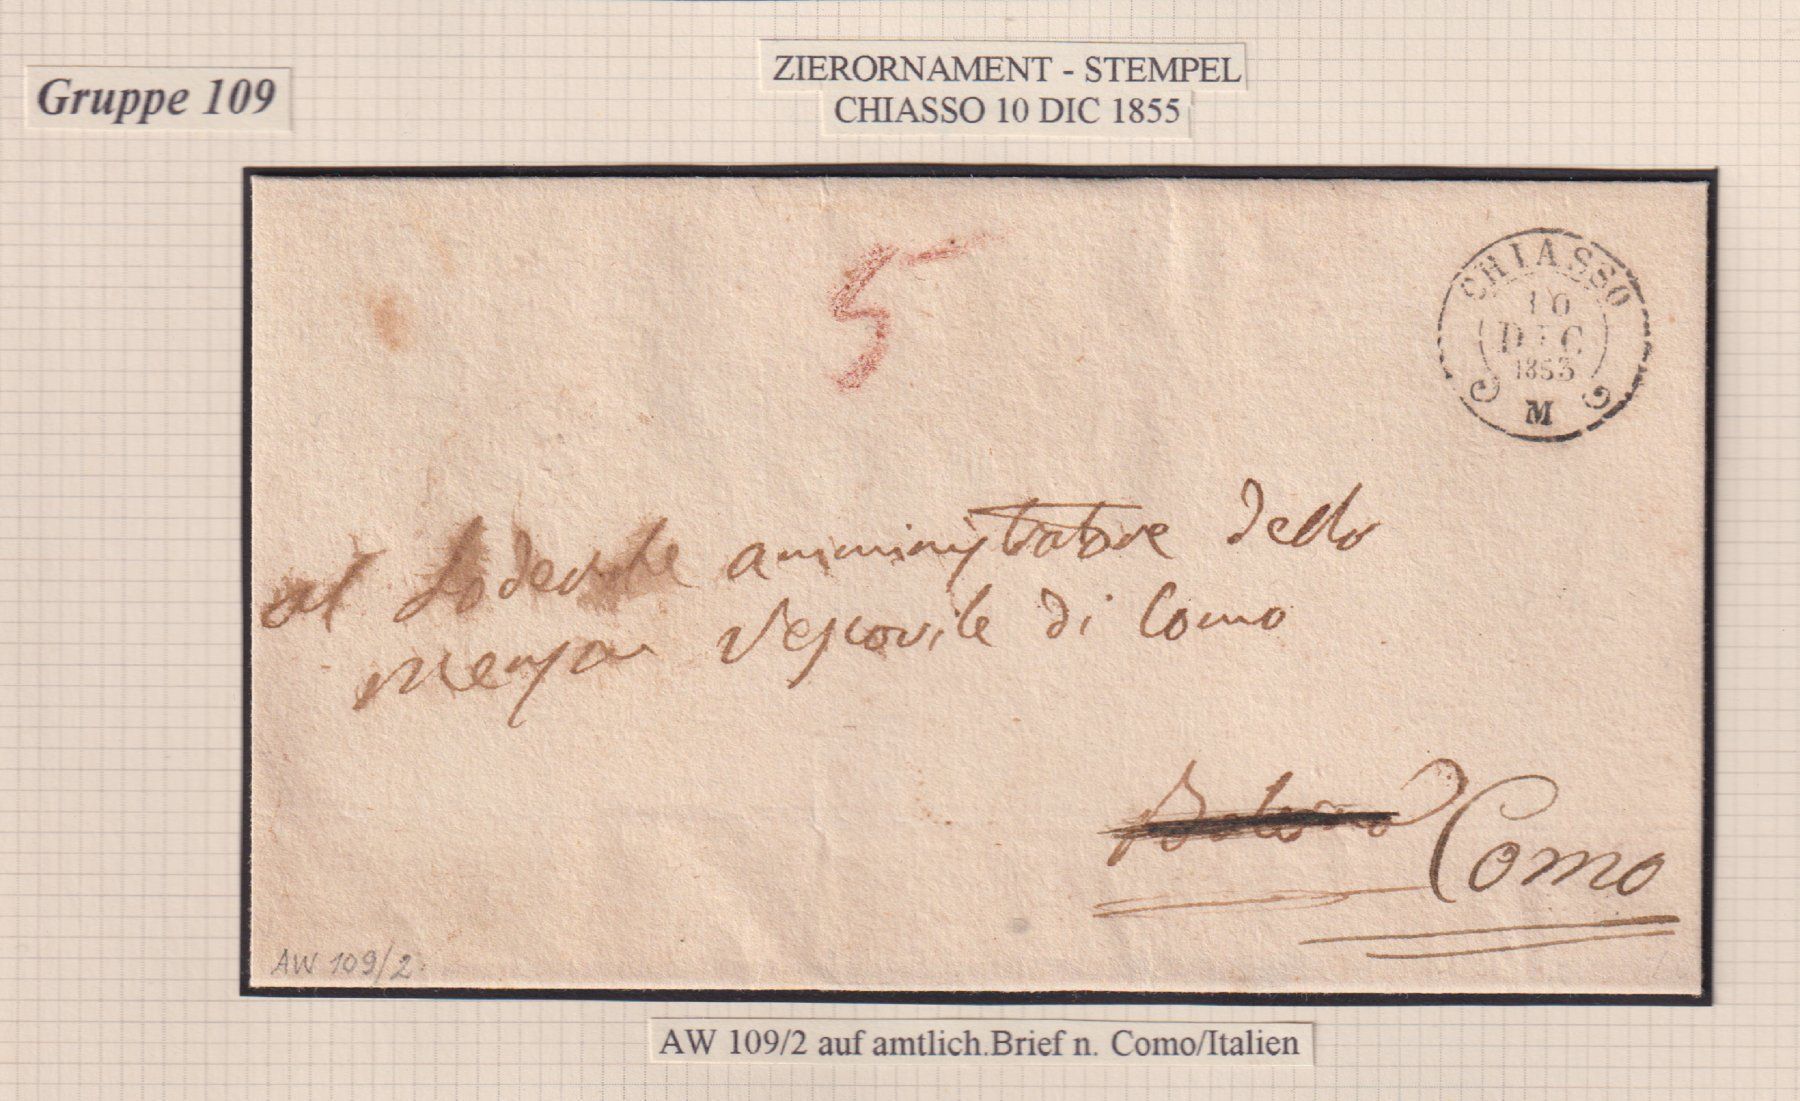 Gruppe 109
ZIERORNAMENT - STEMPEL
CHIASSO 10 DIC 1855
5
CHIASSO
10
DIC
1853
M
al Lodevole amministratore della
mensa Vescovile di Como
Como
AW 109/2
AW 109/2 auf amtlich.Brief n. Como/Italien